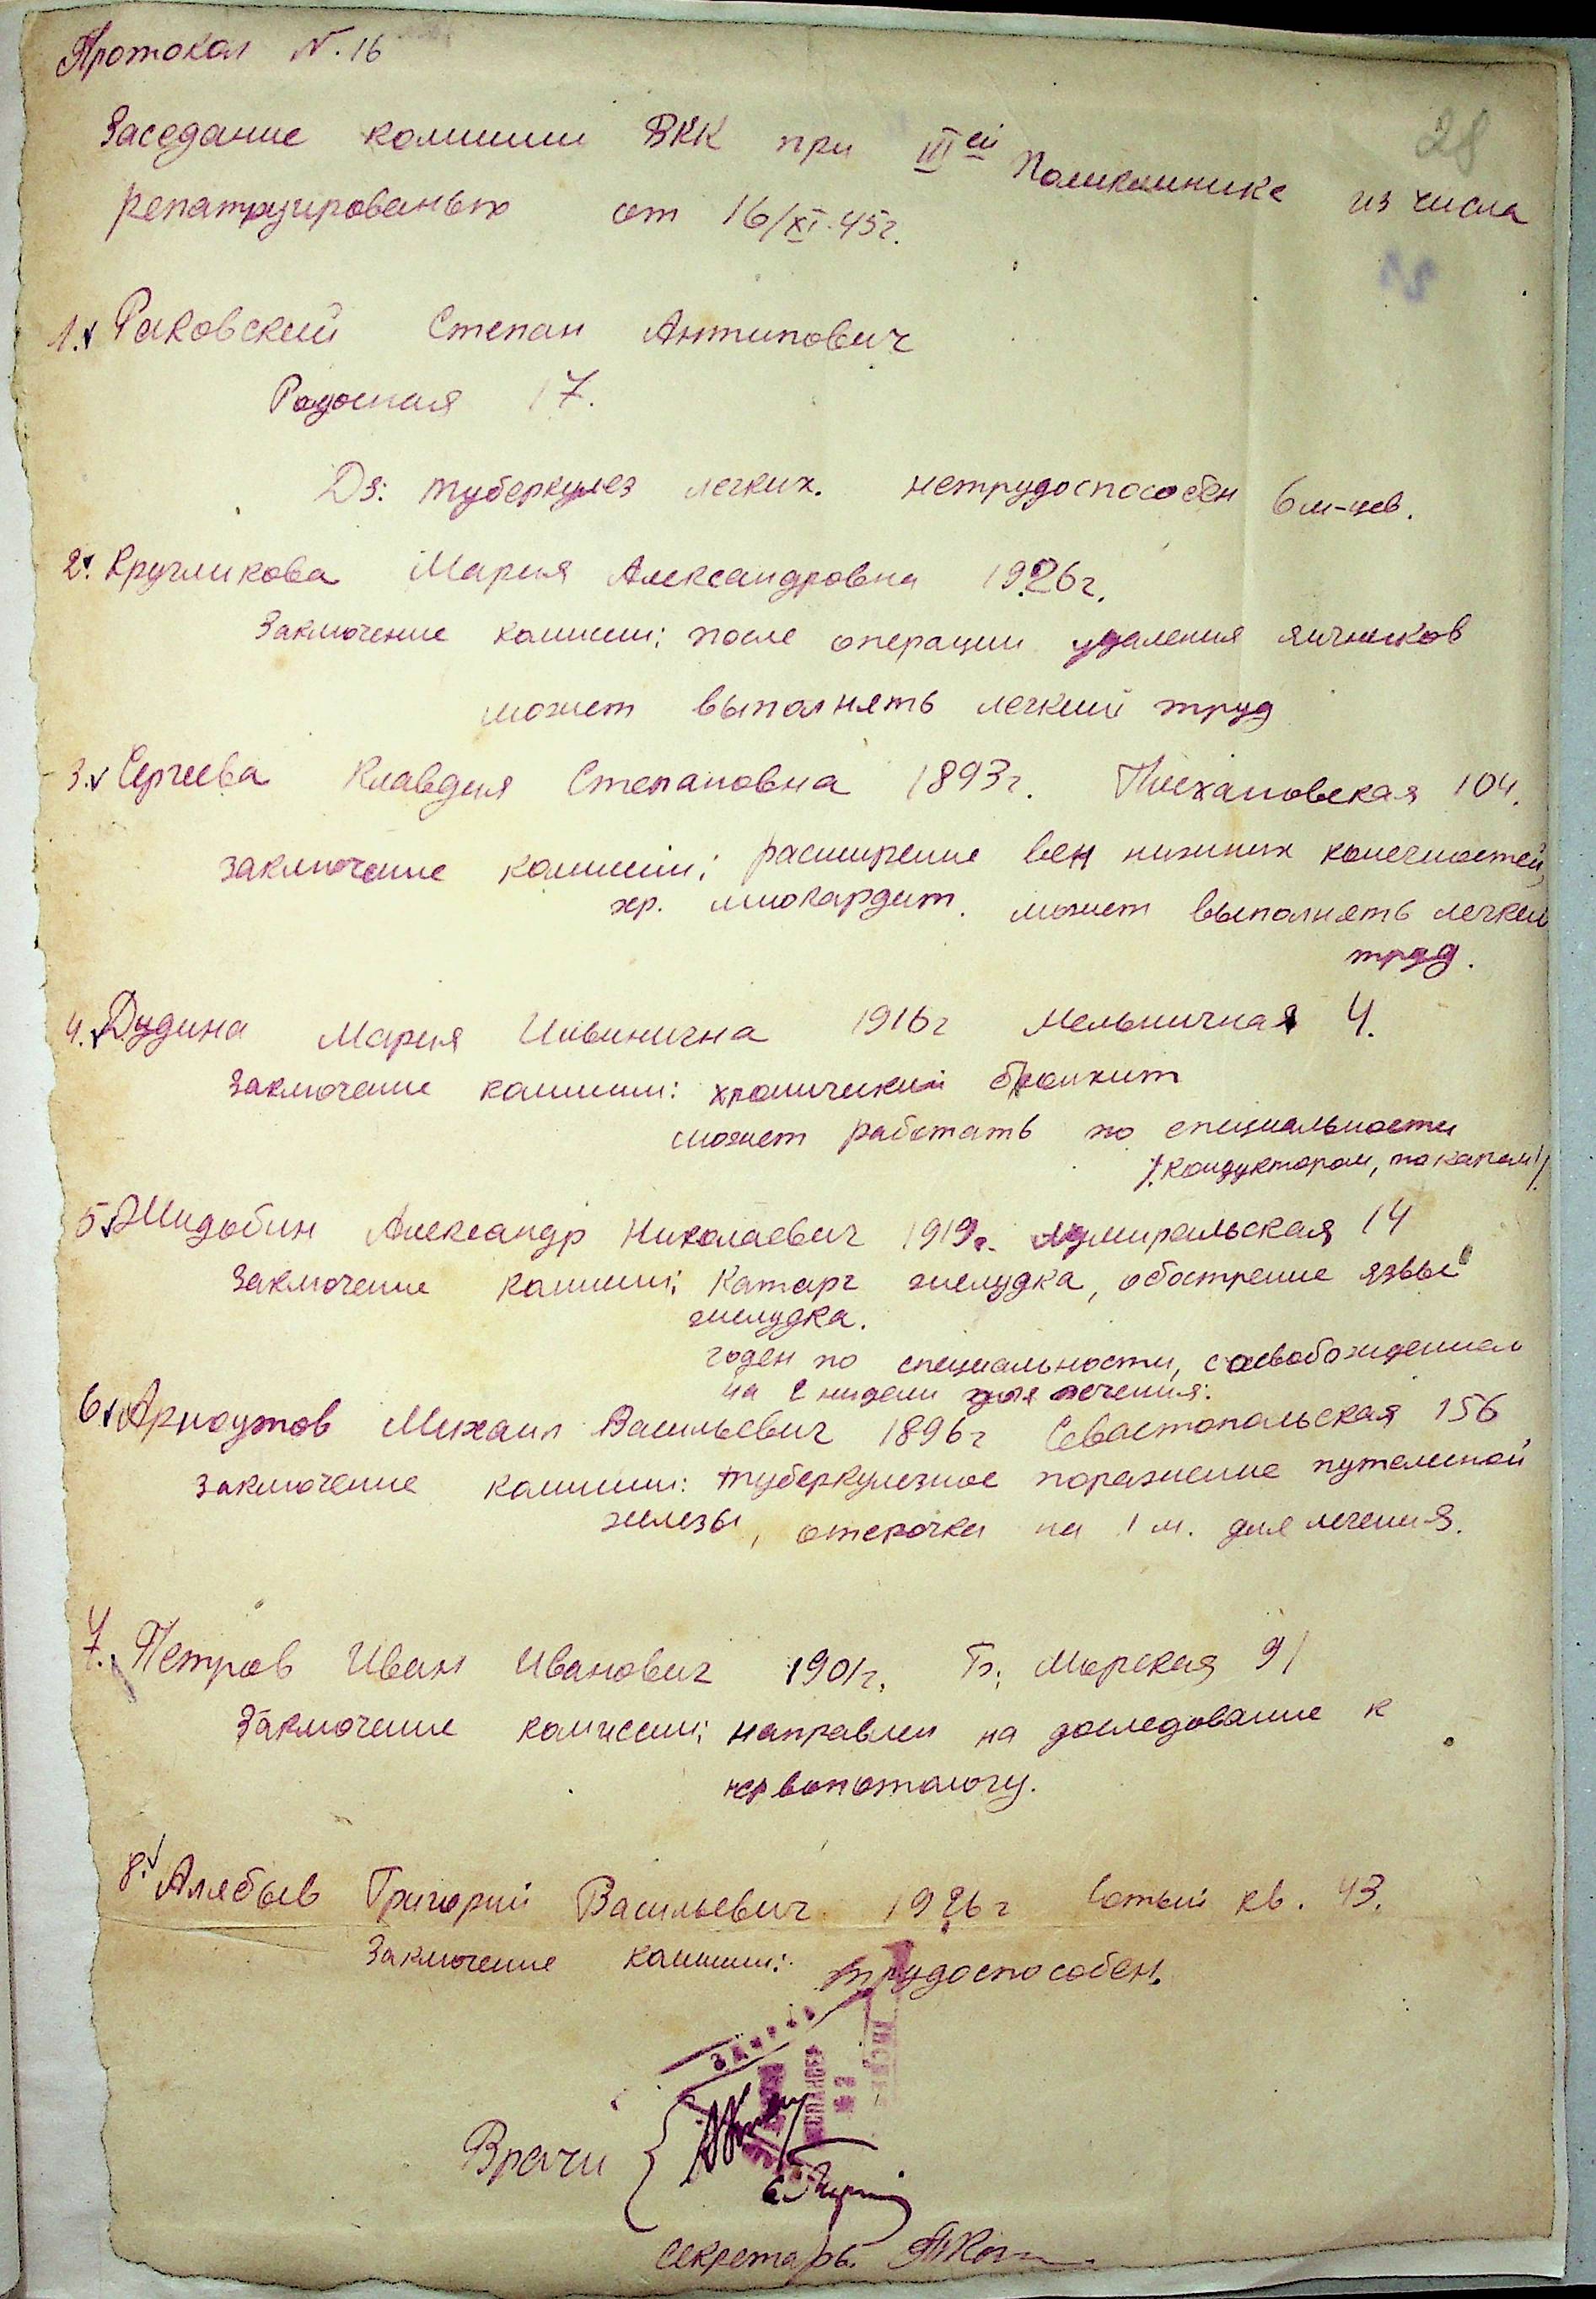 Протокол N. 16
28
Заседание комиссии ВКК при III ей Поликлинике из числа
репатруированых от 16/XI.45г.
1. Раковский Степан Антипович
17.
Dз: туберкулез легких. нетрудоспособен 6 м-цев.
2. Кругликова Мария Александровна 1926г.
Заключение комисии: после операции удаления яичников
может выполнять легкий труд
3. Сергеева Клавдия Степановна 1893г. Плехановская 104.
заключение комиссии: расширение вен нижних конечностей,
хр. миокардит. может выполнять легкий
труд.
4. Дудина Мария Ильинична 1916г Мельничная 4.
Заключение комиссии: хронический бронхит
может работать по специальности
/.кондуктором, токарем/.
5. Жидобин Александр Николаевич 1919г. Адмиральская 14
Заключение комиссии: Катарг желудка, обострение язвы
желудка.
годен по специальности, с освобождением
на 2 недели для лечения.
6. Арноутов Михаил Васильевич 1896г Севастопольская 156
заключение комиссии: туберкулезное поражение
железы, отсрочка на 1 м. для лечения.
7. Петров Иван Иванович 1901г. Б. Морская 91
Заключение комиссии: направлен на доследование к
нервопотологу.
8. Алябьев Григорий Васильевич 1926г кв. 43.
Заключение комиссии: трудоспособен.
Врачи
Секретарь